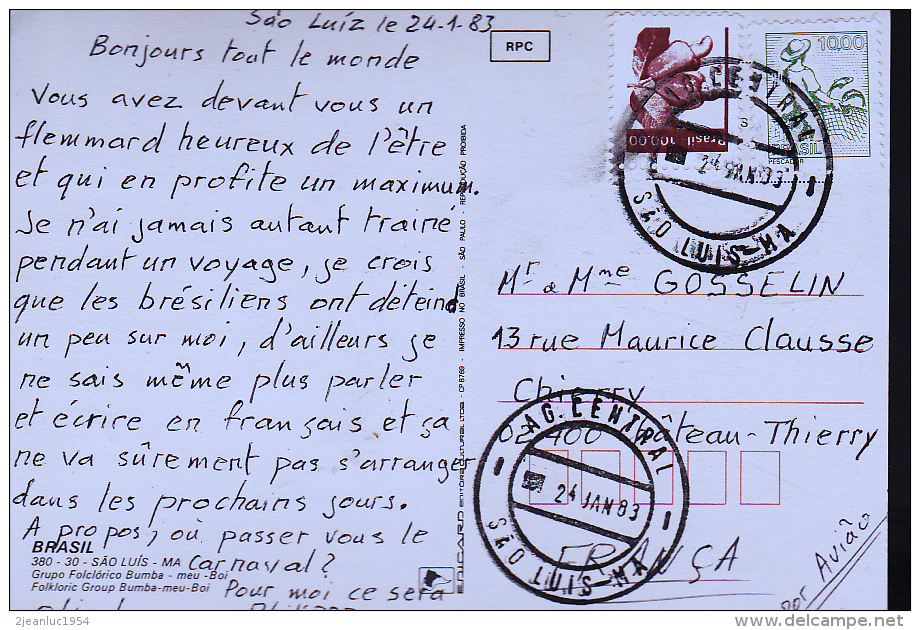 São Luíz le 24-1-83
Bonjours tout le monde
Vous avez devant vous un
flemmard heureux de l'être
et qui en profite un maximum.
Je n'ai jamais autant trainé
pendant un voyage, je crois
que les brésiliens ont déteind
un peu sur moi, d'ailleurs je
ne sais même plus parler
et écrire en français et ça
ne va sûrement pas s'arranger
dans les prochains jours.
A propos, où passer vous le
Carnaval?
Pour moi ce sera
BRASIL
380 - 30 - SÃO LUÍS - MA
Grupo Folclórico Bumba - meu - Boi
Folkloric Group Bumba-meu-Boi
EDICARD EDITORA CULTURAL LTDA. - CP 8769 - IMPRESSO NO BRASIL - SÃO PAULO - REPRODUÇÃO PROIBIDA
RPC
Brasil 100,00
10,00
BRASIL
PESCADOR
AG. CENTRAL
24 JAN 83
SÃO LUIS-MA
Mr & Mme GOSSELIN
13 rue Maurice Clausse
Chierry
02400 Château-Thierry
FRANÇA
AG. CENTRAL
24 JAN 83
SÃO LUIS-MA
por Avião
2jeanluc1954
delcampe.net